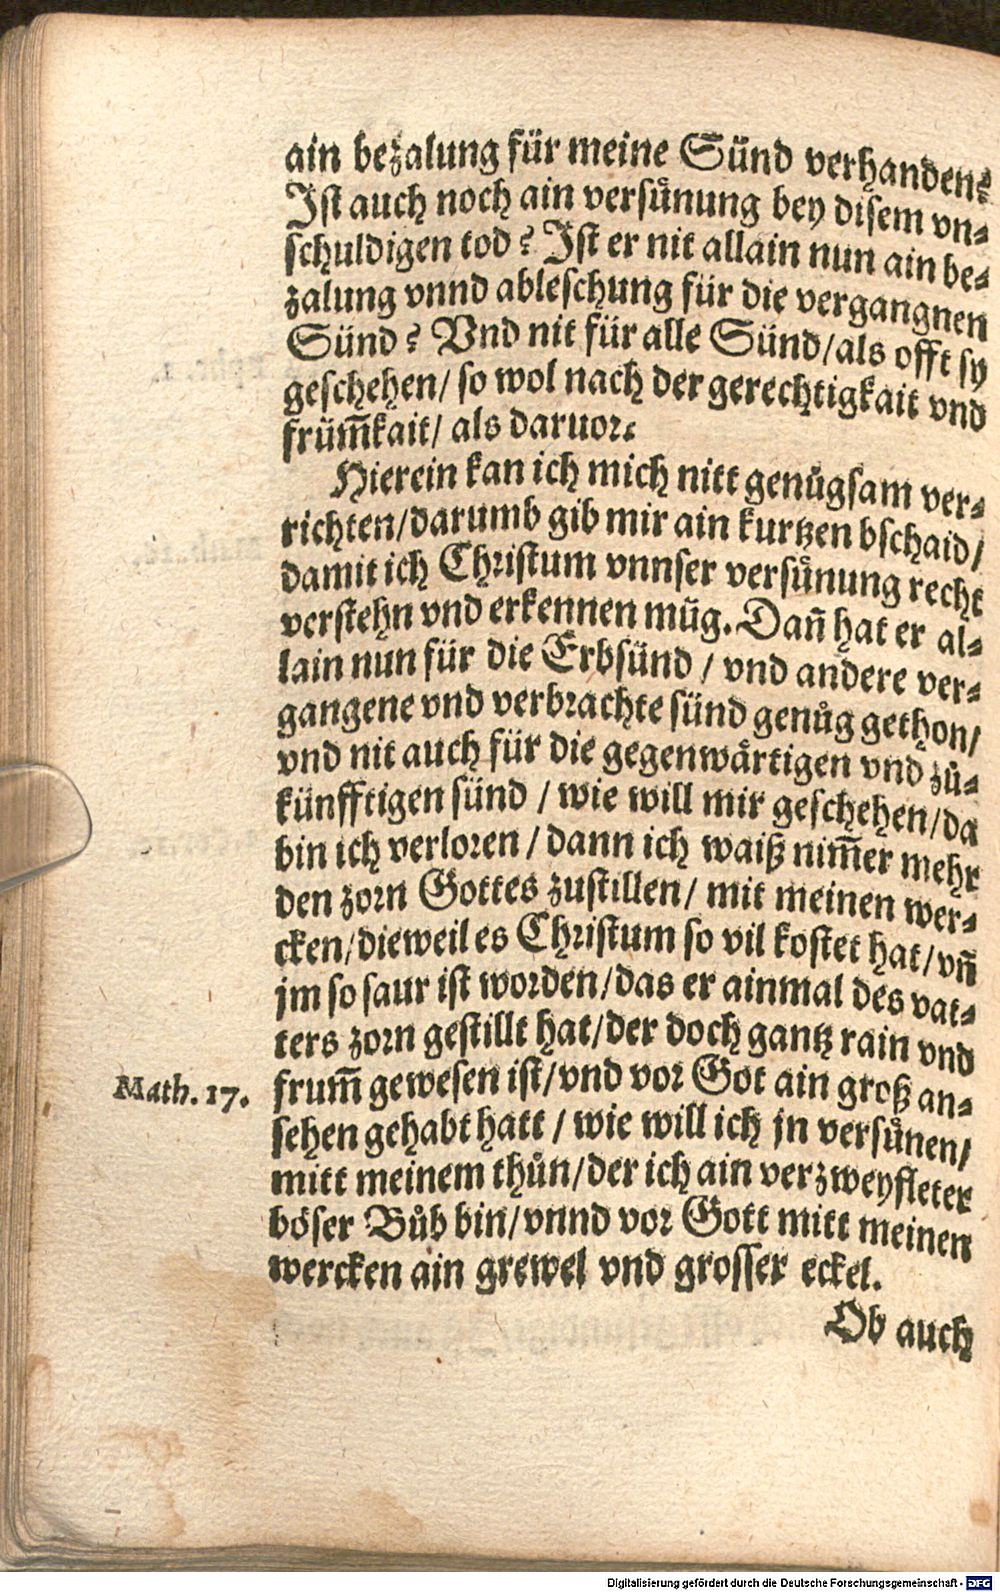 ain bezalung für meine Sünd verhanden?
Ist auch noch ain versuͤnung bey disem vn⸗
schuldigen tod? Ist er nit allain nun ain be⸗
zalung vnnd ableschung für die vergangnen
Sünd? Vnd nit für alle Sünd/als offt sy
geschehen/ so wol nach der gerechtigkait vnd
früm̃kait/ als daruor.
Hierein kan ich mich nitt genuͦgsam ver⸗
richten/darumb gib mir ain kurtzen bschaid/
damit ich Christum vnnser versuͤnung recht
verstehn vnd erkennen müg. Dañ hat er al⸗
lain nun für die Erbsünd / vnd andere ver⸗
gangene vnd verbrachte sünd genuͦg gethon/
vnd nit auch für die gegenwaͤrtigen vnd zuͦ⸗
künfftigen sünd / wie will mir geschehen/da
bin ich verloren / dann ich waiß nim̃er mehr
den zorn Gottes zustillen/ mit meinen wer⸗
cken/dieweil es Christum so vil kostet hat/vñ
jm so saur ist worden/das er ainmal des vat⸗
ters zorn gestillt hat/der doch gantz rain vnd
Math. 17. frum̃ gewesen ist/vnd vor Got ain groß an⸗
sehen gehabt hatt / wie will ich jn versuͤnen/
mitt meinem thuͦn/der ich ain verzweyfleter
böser Buͦb bin/vnnd vor Gott mitt meinen
wercken ain grewel vnd grosser eckel.
Ob auch
Digitalisierung gefördert durch die Deutsche Forschungsgemeinschaft - DFG